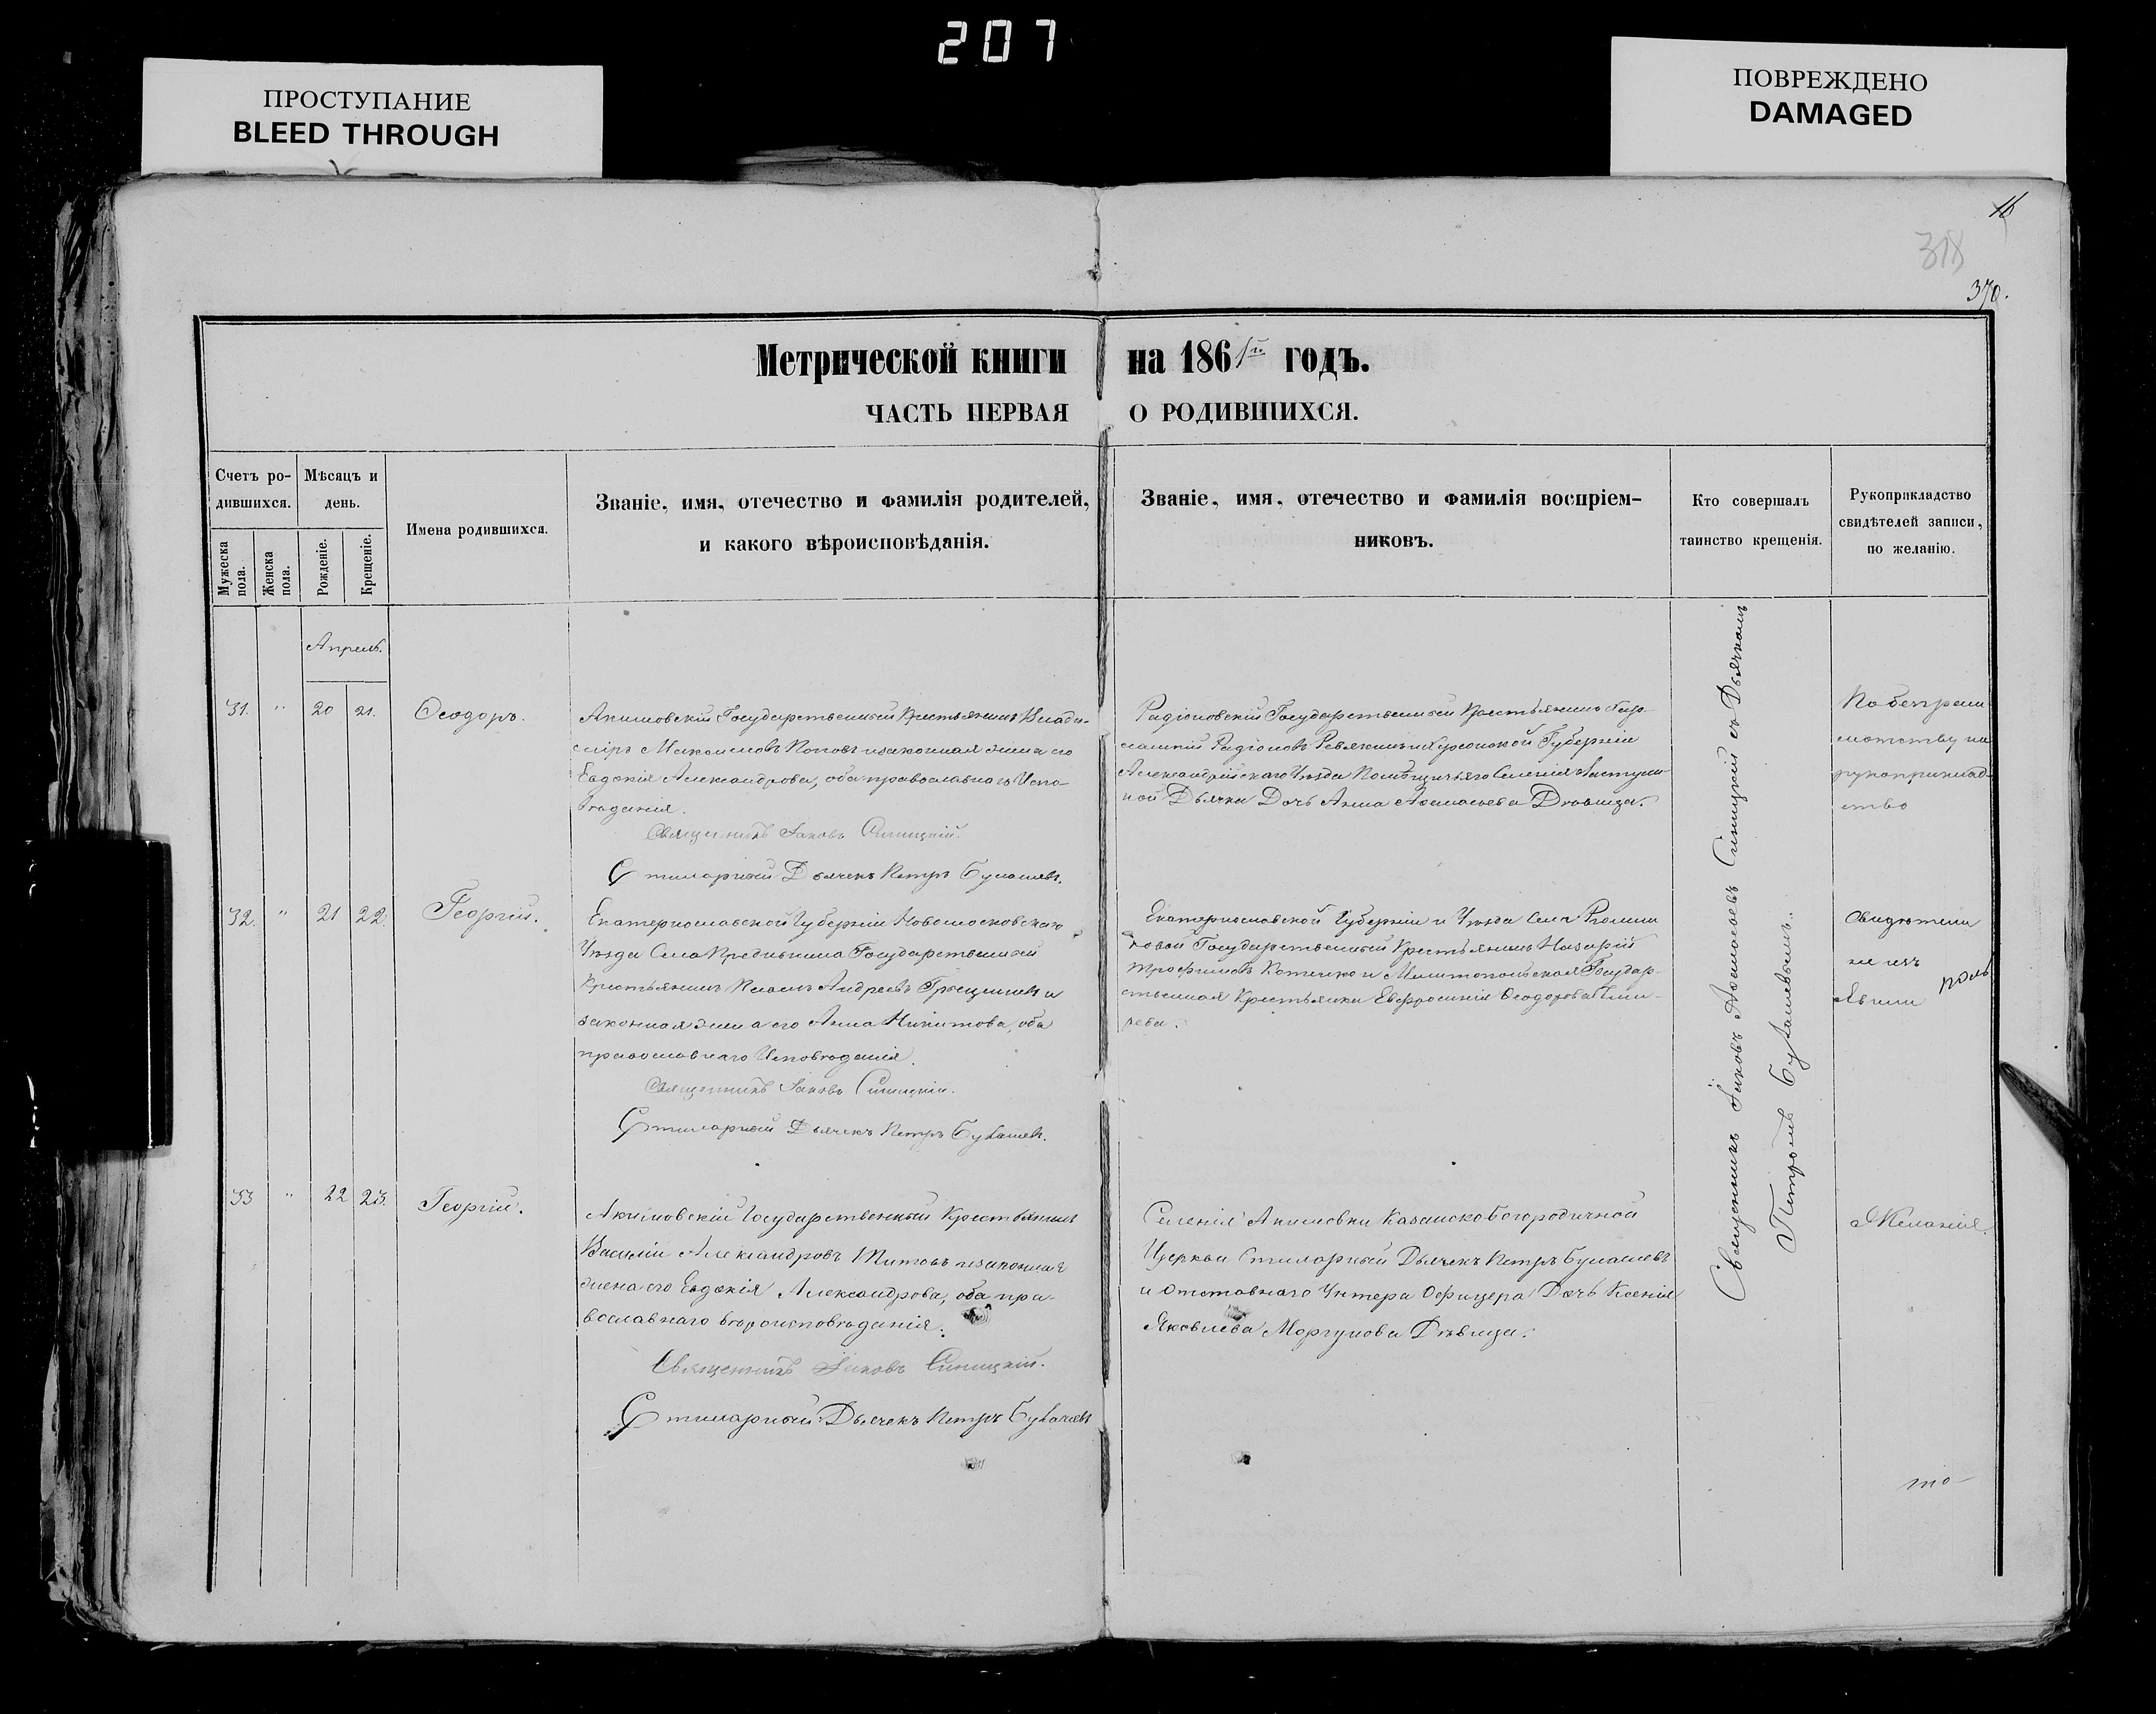 207
ПРОСТУПАНИЕ
BLEED THROUGH
ПОВРЕЖДЕНО
DAMAGED
16
318
370.
Метрической книги на 1861 годъ.
ЧАСТЬ ПЕРВАЯ О РОДИВШИХСЯ.
Счетъ ро-
дившихся.
Мужеска
пола.
Женска
пола.
Мѣсяцъ и
день.
Рожденіе.
Крещеніе.
Имена родившихся.
Званіе, имя, отечество и фамилія родителей,
и какого вѣроисповѣданія.
Званіе, имя, отечество и фамилія воспріем-
никовъ.
Кто совершалъ
таинство крещенія.
Рукоприкладство
свидѣтелей записи,
по желанію.
Апрель.
31. " 20 21. Ѳеодоръ.
Акимовскій Государственный Крестьянинъ Влади-
міръ Максимовъ Поповъ и законная жена его
Евдокія Александрова, оба православнаго Испо-
вѣданія.
Священникъ Іаковъ Синицкій.
Стихарный Дьячекъ Петръ
Радіоновскій Государственный Крестьянинъ
Радіоновъ Ревякинъ и Херсонской Губерніи
Александрійскаго Уѣзда Помѣщичьяго Селенія
Дьячка Дочь Анна Аѳанасьева Дѣвица.
По безграм
мотству на
рукоприклад-
ство
32. " 21 22. Георгій.
Екатеринославской Губерніи Новомосковскаго
Уѣзда Села Государственный
Крестьянинъ Андреевъ и
законная жена его Анна Никитова, оба
православнаго Исповѣданія.
Священникъ Іаковъ Синицкій.
Стихарный Дьячекъ Петръ
Екатеринославской Губерніи и Уѣзда Села
Государственный Крестьянинъ Назарій
Трофимовъ и Мелитопольская Государ-
ственная Крестьянка Евфросинія Ѳеодорова
рева.
Свидѣтели
не изъ
явили
33 " 22 23. Георгій.
Акимовскій Государственный Крестьянинъ
Василій Александровъ Титовъ и законная
жена его Евдокія Александрова, оба пра-
вославнаго вѣроисповѣданія.
Священникъ Іаковъ Синицкій.
Стихарный Дьячекъ Петръ
Селенія Акимовки Казанско Богородичной
Церкви Стихарный Дьячекъ Петръ
и отставнаго Унтера Офицера Дочь Ксенія
Яковлева Моргунова Дѣвица.
Желанія.
то
Священникъ Іаковъ Аѳанасьевъ Синицкій съ Дьячкомъ
Петромъ